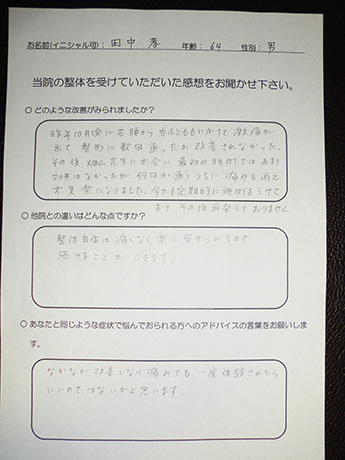 お名前(イニシャル可): 田中 孝 年齢: 64 性別: 男
当院の整体を受けていただいた感想をお聞かせ下さい。
○ どのような改善がみられましたか?
昨年10月頃に右腰から右ふとももにかけて激痛が
出て、整形に数回通ったが改善されなかった。
その後 畑山先生に出会い、最初の施術ではあまり
効果はなかったが、何日か通ううちに痛みも消え
大変楽になりました。今でも定期的に施術をうけて
おり、その後再発しておりません
○ 他院との違いはどんな点ですか?
整体自体は痛くなく楽に受けられるので
続けることができます。
○ あなたと同じような症状で悩んでおられる方へのアドバイスの言葉をお願いしま
す。
なかなか改善しない痛みでも、一度体験されたら
いいのではないかと思います。